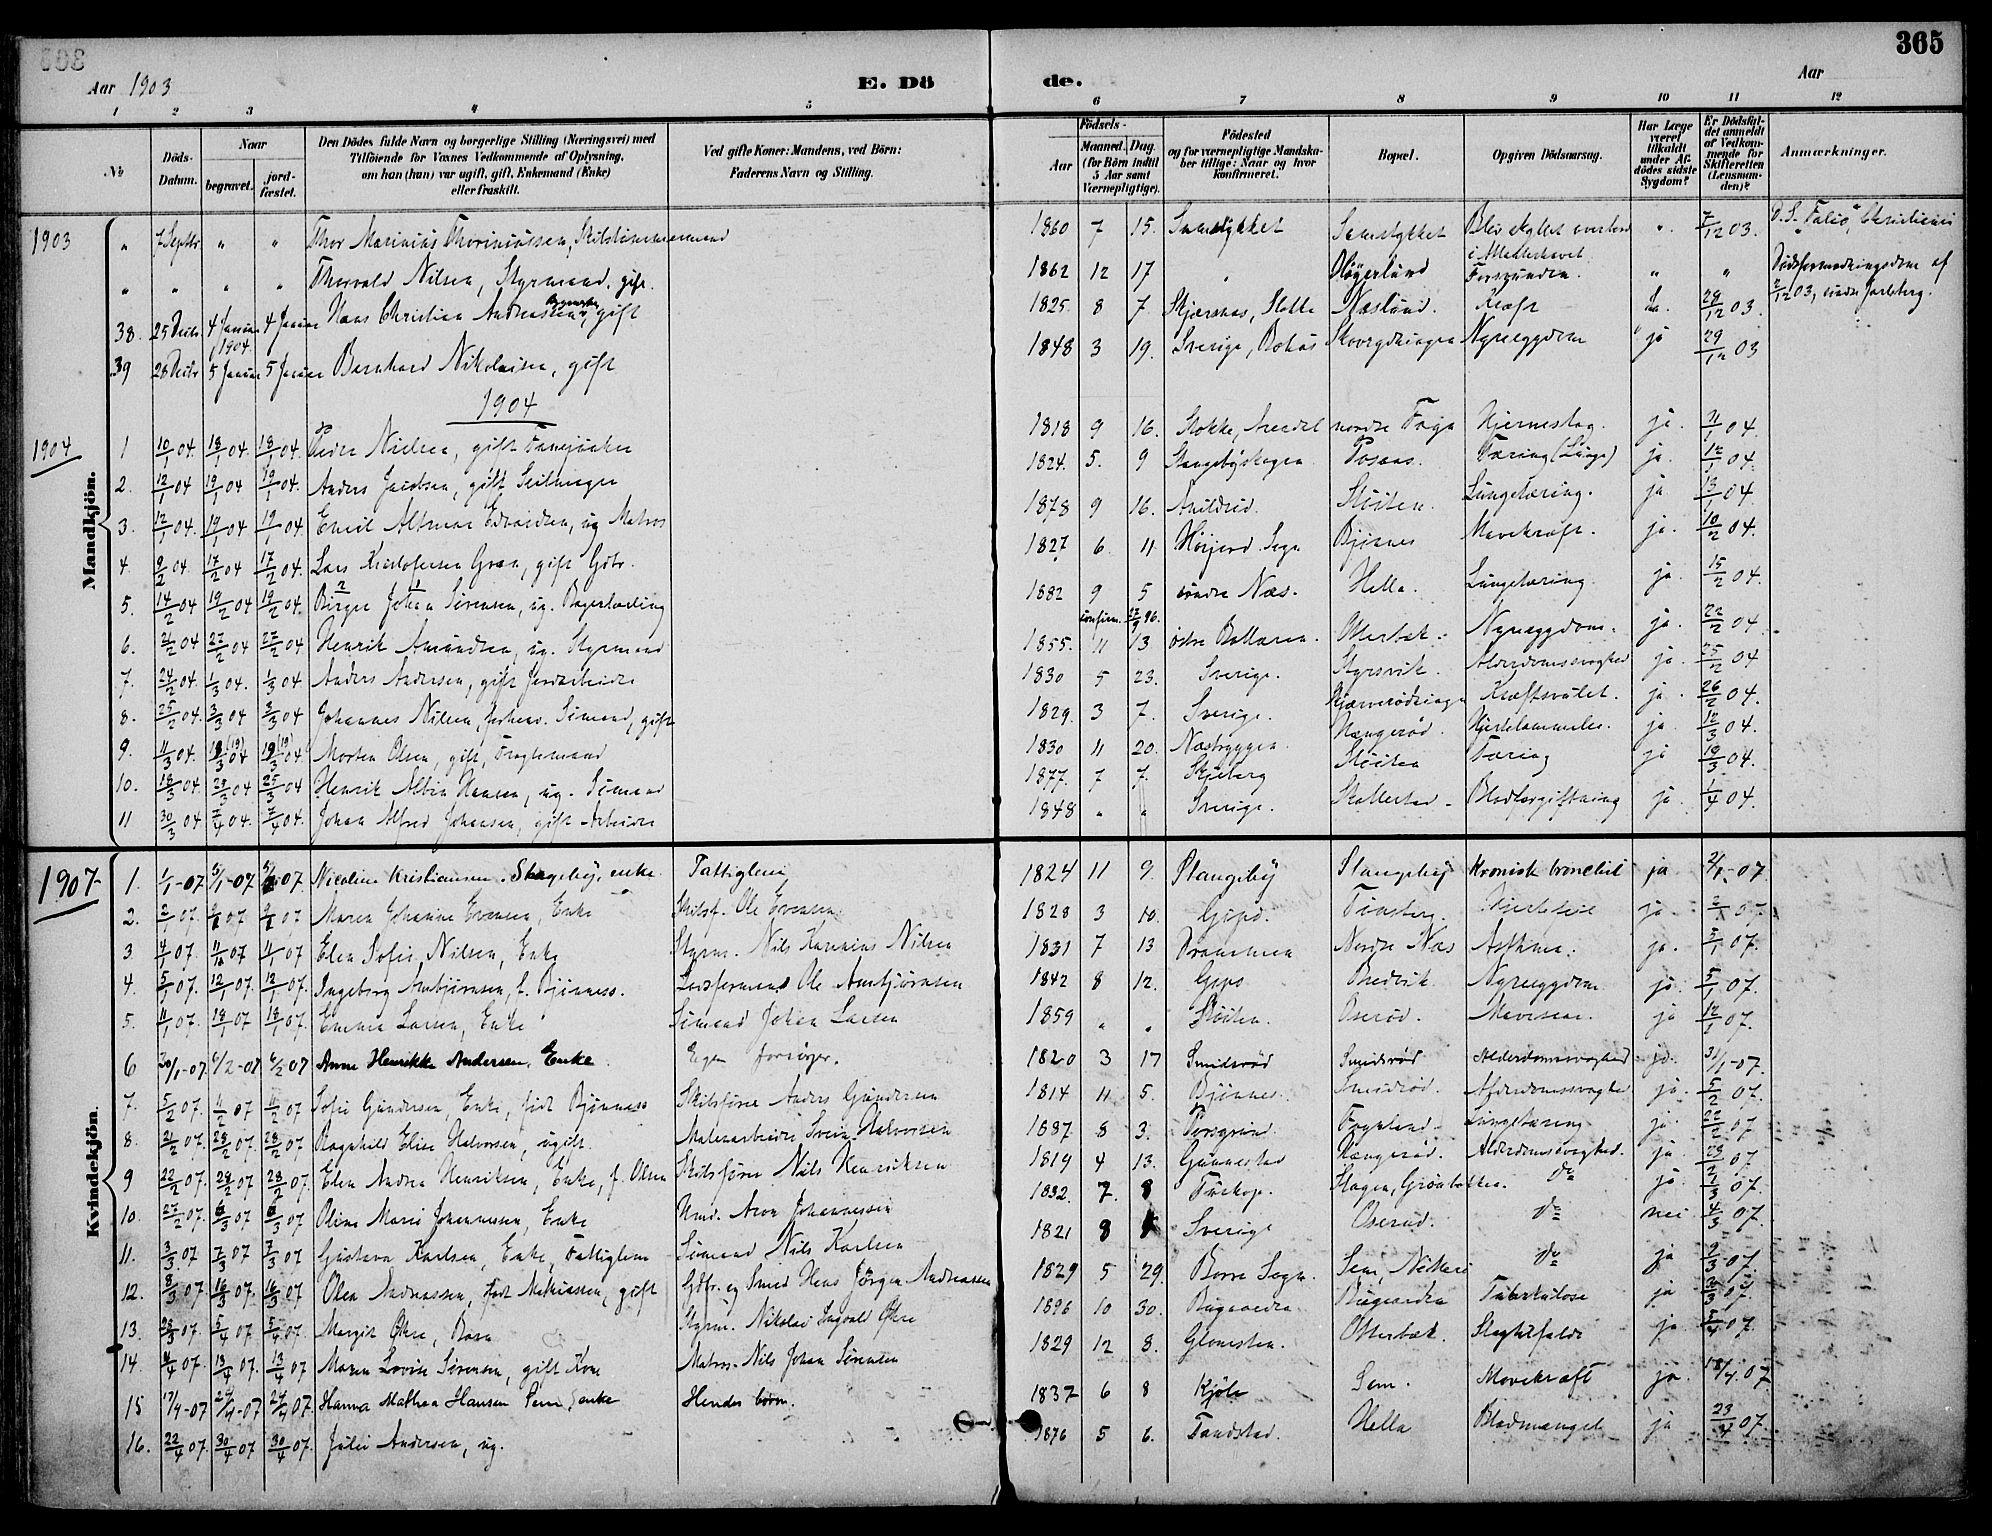 365
Aar 1903 E. Döde. Aar
1 2 3 4 5 6 7 8 9 10 11 12
No
Döds-Datum.
Naar
begravet.
jordfæstet.
Den Dödes fulde Navn og borgerlige Stilling (Næringsvei) med Tilföiende for Voxnes Vedkommende af Oplysning, om han (hun) var ugift, gift, Enkemand (Enke) eller fraskilt.
Ved gifte Koner: Mandens, ved Börn: Faderens Navn og Stilling.
Födsels-
Aar
Maaned. Dag.
(for Börn indtil 5 Aar samt Værnepligtige).
Födested og for værnepligtige Mandskaber tillige: Naar og hvor Konfirmeret.
Bopæl.
Opgiven Dödsaarsag.
Har Læge været tilkaldt under Afdödes sidste Sygdom?
Er Dödsfaldet anmeldt af Vedkommende for Skifteretten (Lensmanden)?
Anmærkninger.
Mandkjön.
1903 " 7 Septbr " " Thor Marinius Thorinussen, Skibstömmermand 1860 7 15. " 7/12 03.
" " " " Thorvald Nilsen, Styrmand, gift. 1862 12 17 " Høgerlund Forsvunden. " " Dødsformodningsdom af 2/12 03, søndre Jarlsberg.
38. 25 Decbr. 4 Januar 1904. 4 Januar Hans Christian Andreassen, gift 1825 8 7. Næslund. Kræft 28/12 03.
39 26 Decbr 5 Januar 5 Januar Bernhard Nikolaisen, gift 1848 3 19. Sverige, Nyresygdom ja 29/12 03
1904
1904 1 10/1 04. 18/1 04. 18/1 04. Peder Nielsen, gift 1818 9 16. nordre Hjerneslag. ja. 11/1 04.
2. 12/1 04 19/1 04 19/1 04. Anders Jacobsen, gift Seilmager 1824. 5. 9 Slangebyskogen Tæring (Lunge) ja. 12/1 04.
3. 12/1 04. 19/1 04 19/1 04. Emil Altmar Edvardsen, ug. Matros 1878 9 16. Støiten. Lungetæring. ja 13/1 04.
4. 9/2 04. 17/2 04 17/2 04. Lars Kristofersen Gran, gift Gdbr. 1827 6 11 Bjønnes Mavekræft. ja. 10/2 04.
5. 14/2 04 19/2 04 19/2 04. Birger Johan Sørensen, ug. Bagerlærling 1882 9 5 søndre Næs. Hella. Lungetæring. ja. 15/2 04.
confirm. 27/9 96.
6. 21/2 04 27/2 04 27/2 04 Henrik Amundsen, ug. Styrmand 1855. 11 13 østre Bolleren. Otterbæk. Nyresygdom. ja. 22/2 04.
7. 24/2 04. 1/3 04. 1/3 04 Anders Andersen, gift Jordarbeider 1830 5 23. Sverige. Styrsvik. Alderdomssvaghed ja. 25/2 04
8. 25/2 04. 3/3 04 3/3 04 Johannes Nilsen, Sømand, gift 1829. 3 7. Sverige. Kræftsvulst. ja. 26/2 04.
9. 11/3 04. 18(19)/3 04 19(19)/3 04. Morten Olsen, gift, Fragtemand 1830 11 20. Næsbryggen Hængerød. Hjertelammelse. ja. 12/3 04.
10. 18/3 04 23/3 04 25/3 04 Henrik Albin Hansen, ug. Sømand 1877. 7 7. Skjeberg Støiten Tæring ja 19/3 04.
11 30/3 04 7/4 04. 7/4 04. Johan Alfred Johansen, gift Arbeider 1848 " " Sverige. Skallestad. Blodforgiftning ja. 1/4 04.
Kvindekjön.
1907 1. 1/1-07 5/1-07 5/1-07 Nicoline Kristiansen. Slageby, enke. Fattiglem 1824 11 9. Slangeby Slangeby Kronisk bronchit ja 2/1-07.
2. 2/1 07. 9/1 07 9/1 07 Maren Johanne Evensen, Enke Skibsf. Ole Evensen 1828 3 10. Gipö. Tønsberg. Hjertefeil ja. 3/1 07.
3 4/1 07. 11/1 07 11/1 07 Elen Sofie Nilsen, Enke Styrm. Nils Karenius Nilsen 1831 7 13 Drammen Nordre Næs Asthma. ja. 5/1 07.
4. 5/1 07. 12/1 07. 12/1 07. Ingeborg Arnbjørnsen, f. Bjønness. Lodsformand Ole Arnbjørnsen 1842 8 12. Gipø Bredvik. Nyresygdom ja. 5/1 07.
5. 11/1 07. 18/1 07 18/1 07. Emma Larsen, Enke Sømand Johan Larsen 1859 " " Støiten. Oserød. Mavesaar. ja 12/1 07.
6 30/1-07. 6/2-07 6/2 07 Anne Henrikke Andersen. Enke Egen forsørger. 1820 3 17 Smidsrød Smidsrød Alderdomssvaghed ja. 31/1-07.
7. 5/2 07. 11/2 07 11/2 07 Sofie Gundersen, Enke, født Bjønness Skibsfører Anders Gundersen 1814 11 5. Bjønnes. Smidsrød. Alderdomssvaghed ja. 5/2 07.
8. 21/2 07. 28/2 07. 28/2 07 Ragnhild Elise Halvorsen, ugift. Malerarbeider Svein Halvorsen 1887 8 3. Porsgrund. Fognland. Lungetæring ja. 22/2 07
9 22/2 07. 28/2 07 28/2 07. Elen Andrea Henriksen, Enke, f. Olsen Skibsfører Nils Henriksen 1819 4 13. Gunnestad Hængerød. Alderdomssvaghed. ja. 23/2 07.
10. 27/2 07. 6/3 07 6/3 07 Oline Marie Johannessen, Enke Hmd. Aron Johannessen 1832. 7. 8 Tørkop. Slagen, Grønbakken. do ja. 2/3 07.
11. 3/3 07 7/3 07 7/3 07 Gustava Karlsen, Enke, Fattiglem Sømand Nils Karlsen 1821 8 Sverige Oserød. do nei 4/3 07.
12. 8/3 07. 16/3 07. 16/3 07. Olea Andreassen, født Mathiassen, gift Gdbr. og Smed Hans Jørgen Andreassen 1829 5 29. Borre Sogn. Sem, Nøtterø do ja 9/3 07.
13. 28/3 07. 5/4 07 5/4 07. Margit Økre, Barn Styrm. Nikolai Sagvald Økre 1896 10 30. Bugaarden Bugaarden Tuberkulose ja 30/3 07.
14. 4/4 07. 13/4 07. 13/4 07. Maren Lovise Sørensen, gift Kone Matros. Nils Johan Sørensen 1829 12 8. Glomsten. Otterbæk. Slagtilfælde ja. 5/4 07.
15 17/4-07 24/4-07 24/4 07. Hanna Mathea Hansen Sem, enke Hendes börn. 1837 6 8 Kjøle Sem. Mavekræft ja. 18/4 07.
16. 22/4 07. 30/4 07 30/4 07. Julie Andersen, ug. 1876 5 6. Tandstad. Hella Blodmangel ja 23/4 07.